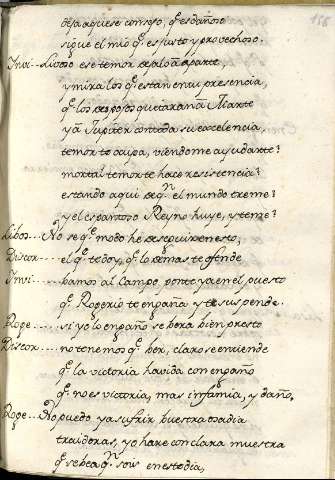 desa aquese consejo, q̃ es dañoso
sigue el mio q̃ es justo y provechoso.
Invi.. Liboso ese temor dexalo aparte
y mira los q̃ estan en tu presencia,
q̃ los despojos quitaran a Marte
y a Jupiter con toda su excelencia,
temor te ocupa, viendome ayudarte?
mortal temor te hace resistencia?
estando aqui de q̃n el mundo treme?
y el espantoso Reyno huye, y teme?
Libos... No se q̃ modo he de seguir en esto,
Discor... el q̃ te doy, q̃ lo demas te ofende
Invi... bamos al Campo ponte ya en el puesto
q̃ Rogerio te engaña y te suspende.
Roge... si yo lo engaño se bera bien presto
Discor... no tenemos q̃ ber, claro se entiende
q̃ la victoria havida con engaño
q̃ no es victoria, mas infamia, y daño,
Roge... No puedo ya sufrir buestra osadia
traidoras, yo hare con clara muestra
q̃ se bea q̃n sois en este dia,